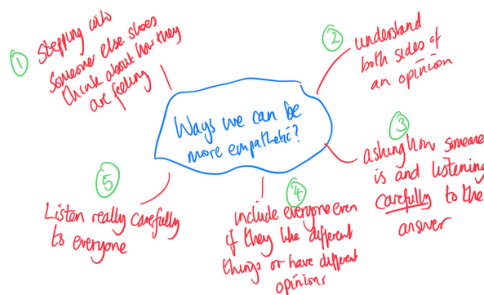 Ways we can be
more empathetic?
①
Stepping into
someone else shoes
think about how they
are feeling
②
understand
both sides of
an opinion
③
asking how someone
is and listening
carefully to the
answer
④
include everyone even
if they like different
things or have different
opinions
⑤
Listen really carefully
to everyone